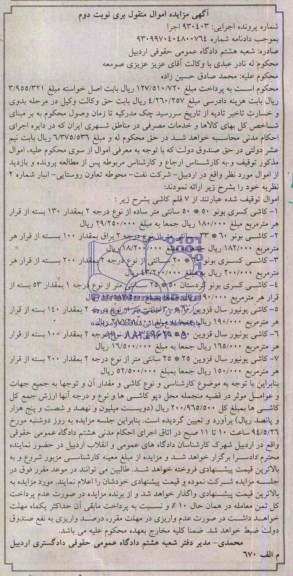 آگهی مزایده اموال منقول بری نوبت دوم
شماره پرونده اجرایی: ۹۳۰۴۰۳ اجرا
بموجب دادنامه شماره ۹۳۰۹۹۷۰۴۰۴۸۰۰۷۶۴
صادره: شعبه هشتم دادگاه عمومی حقوقی اردبیل
محکوم له نادر عبدی با وکالت آقای عزیز عزیزی صومعه
محکوم علیه: محمد صادق حسین زاده
محکوم است به پرداخت مبلغ ۱۲۷/۵۱۰/۷۲۰ ریال بابت اصل خواسته مبلغ ۳/۹۵۵/۳۲۱
ریال بابت هزینه دادرسی مبلغ ۴/۲۶۰/۲۵۷ ریال بابت حق وکالت وکیل در مرحله بدوی
و خسارت تاخیر تادیه از تاریخ سررسید چک مدرکیه تا زمان وصول محکوم به بر مبنای
شاخص کل بهای کالاها و خدمات مصرفی در مناطق شهری ایران که در دایره اجرای
احکام مدنی محاسبه خواهد شد در حق محکوم له و مبلغ ۶/۳۷۵/۵۳۶ ریال بابت نیم
عشر دولتی در حق صندوق دولت که با توجه به معرفی اموال از سوی محکوم علیه، اموال
مذکور توقیف و به کارشناس ارجاع و کارشناس مربوطه پس از مطالعه پرونده و بازدید
از اموال مورد نظر واقع در اردبیل- شرکت نفت- محوطه تعاون روستایی- انبار شماره ۲
نظریه خود را بشرح زیر ارائه نمودند:
اموال توقیف شده عبارتند از ۷ قلم کاشی بشرح زیر:
۱- کاشی کسری یونو ۵۰ * ۵۰ سانتی متر ساده از نوع درجه ۲ بمقدار ۱۳۰ بسته از قرار
هر مترمربع مبلغ ۱۸۰/۰۰۰ ریال جمعا به مبلغ ۲۹/۲۵۰/۰۰۰ ریال
۲- کاشی کسری یونو ۶۰ * ۳۳ نوع درجه ۲ براق بمقدار ۱۰۰ بسته از قرار هر
مترمربع ۱۸۲/۰۰۰ ریال جمعا به مبلغ ۱۸/۲۰۰/۰۰۰ ریال
۳- کاشی کسری یونو ۲۰ سانتی متر از نوع درجه ۲ بمقدار ۲۰۰ بسته از قرار هر
مترمربع ۲۰۰/۰۰۰ ریال جمعا به مبلغ ۴۳/۲۰۰/۰۰۰ ریال
۴- کاشی کسری یونو کردستان ۵۰ * ۲۵ سانتی متر از نوع درجه ۱ بمقدار ۵۳ بسته از
قرار هر مترمربع ریال جمعا به مبلغ ریال
۵- کاشی یونیور سال قزوین سانتی متر از نوع درجه ۲ بمقدار ۱۴۰ بسته از قرار
هر مترمربع ۱۹۰/۰۰۰ ریال جمعا به مبلغ ریال
۶- کاشی یونیور سال قزوین نوع درجه ۲ بمقدار ۱۰۰ بسته از قرار
هر مترمربع ۱۶۵/۰۰۰ ریال جمعا به مبلغ ۱۶/۵۰۰/۰۰۰ ریال
۷- کاشی یونیور سال قزوین ۲۵ * ۲۵ سانتی متر از نوع درجه ۲ بمقدار ۲۰۰ بسته از قرار
هر مترمربع ۱۵۰/۰۰۰ ریال بمبلغ جمعا به ۵۲/۵۰۰/۰۰۰ ریال
بنابراین با توجه به موضوع کارشناسی و نوع کاشی و مقدار آن و توجها به جمیع جهات
و عوامل موثر در قضیه منجمله محل دپو کاشی ها و نوع و درجه آنها ارزش جمع کل
کاشی ها بمبلغ کل ۲۰۰/۹۶۵/۵۰۰ ریال (دویست میلیون و نهصد و شصت و پنج هزار
و پانصد ریال) برآورد و تعیین گردیده است. بنابراین جلسه مزایده به روز دوشنبه مورخ
۹۴/۵/۲۶ ساعت ۱۰ تا ۱۱ صبح در اتاق اجرای احکام مدنی شعبه هشتم دادگاه عمومی حقوقی
واقع در اردبیل شهرک کارشناسان دادگاه های عمومی و انقلاب اردبیل در حضور نماینده
محترم دادسرا برگزار خواهد شد و مزایده از مبلغ معینه کارشناسی مزبور شروع و به
بالاترین قیمت پیشنهادی فروخته خواهد شد. طالبین می توانند در موعد مقرر فوق در
جلسه مزایده شرکت نموده و قیمت پیشنهادی خودشان را اعلام نمایند. مورد مزایده به
بالاترین قیمت پیشنهادی واگذار خواهد شد و از برنده مزایده در صورت عدم پرداخت
کل ثمن معامله در همان حال ۱۰٪ و نسبت به پرداخت مابقی آن حداکثر یکماه مهلت
خواهند داشت در صورت عدم واریزی در مهلت مقرر، درصد واریزی به نفع صندوق
دولت ضبط خواهد شد. ضمنا کلیه مخارج بعهده محکوم علیه می باشد.
محمدی- مدیر دفتر شعبه هشتم دادگاه عمومی حقوقی دادگستری اردبیل
م الف ۶۷۰